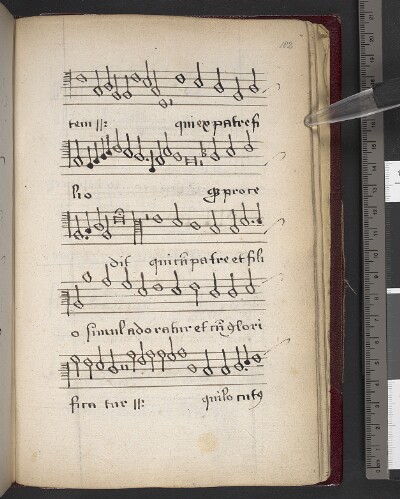 102
tem ||: qui ex patre fi
lio qꝫ proce
dit qui cū patre et fili
o simul adoratur et cū glori
fica tur ||: qui locutꝰ